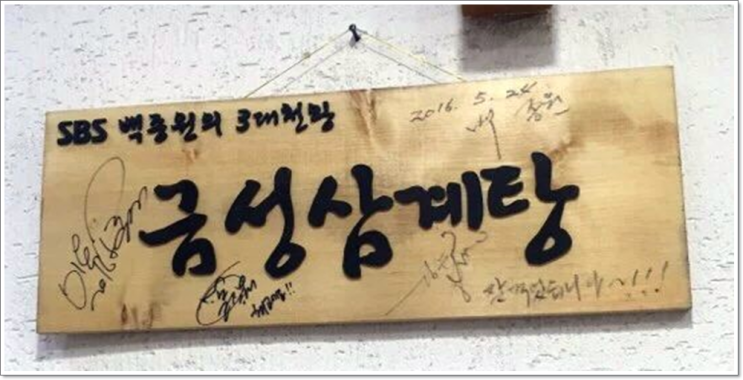 SBS 백종원의 3대천왕
2016. 5. 24
백종원
금성삼계탕
잘 먹었습니다~!!!